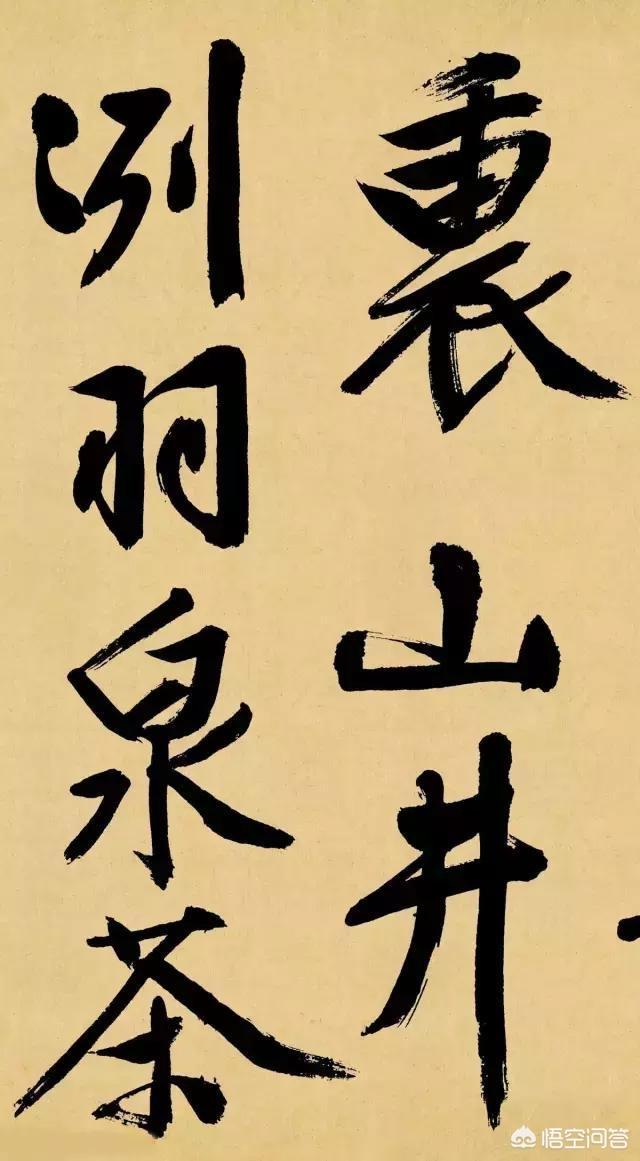 裏山井
冽羽泉茶
悟空问答